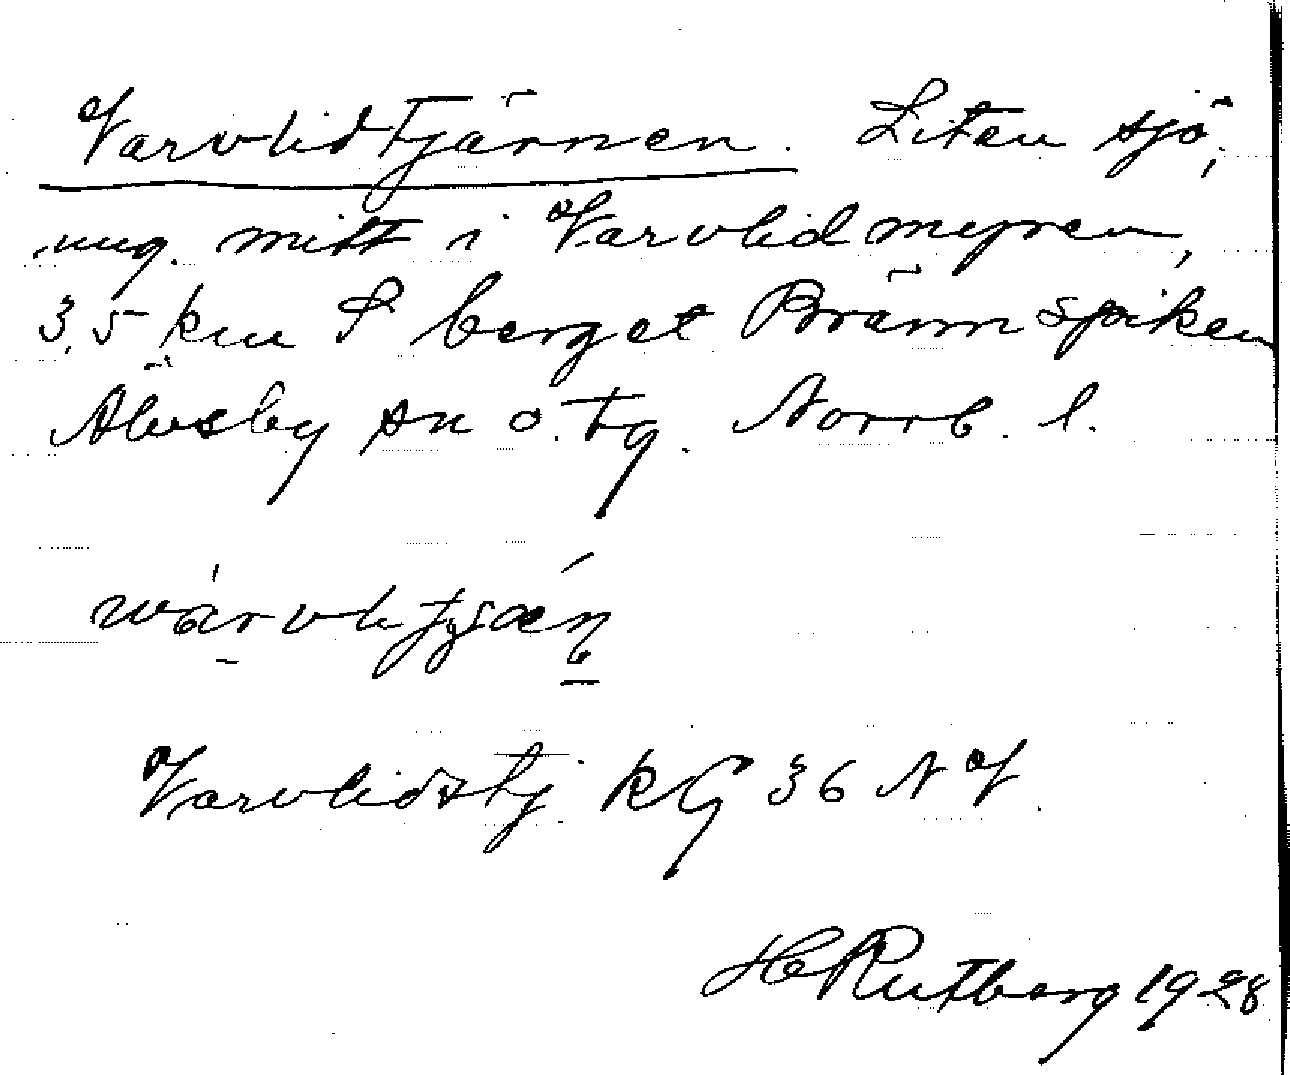 Varvlidtjärnen. Liten sjö,
ung. mitt i Varvlidmyren,
3,5 km S berget Brännspiken
Älvsby sn o. tg. Norrb. l.
Varvlidstj. RG 36 NV.
H Rutberg 1928